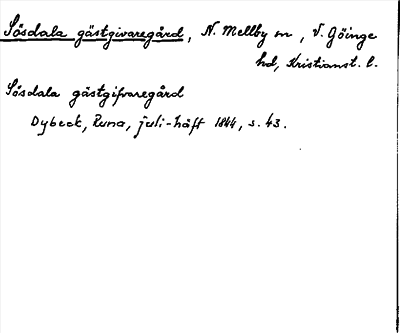 Sösdala gästgivaregård, N. Mellby sn, V. Göinge
hd, Kristianst. l.
Sösdala gästgifvaregård
Dybeck, Runa, juli-häft 1844, s. 43.